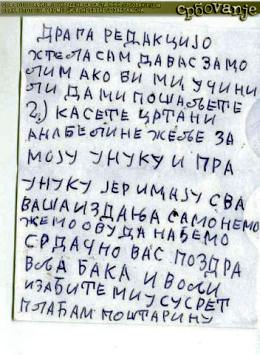 Србовање
ДРАГА РЕДАКЦИЈО
ХТЕЛА САМ ДА ВАС ЗАМО
ЛИМ АКО ВИ МИ УЧИНИ
ЛИ ДА МИ ПОШАЉЕТЕ
2) КАСЕТЕ ЦРТАНИ
АНАБЕЛИНЕ ЖЕЉЕ ЗА
МОЈУ УНУКУ И ПРА
УНУКУ ЈЕР ИМАЈУ СВА
ВАША ИЗДАЊА САМО НЕМО
ЖЕМО ОВУДА НАЂЕМО
СРДАЧНО ВАС ПОЗДРА
ВЉА БАКА И ВОЛИ
ИЗАЂИТЕ МИ У СУСРЕТ
ПЛАЋАМ ПОШТАРИНУ